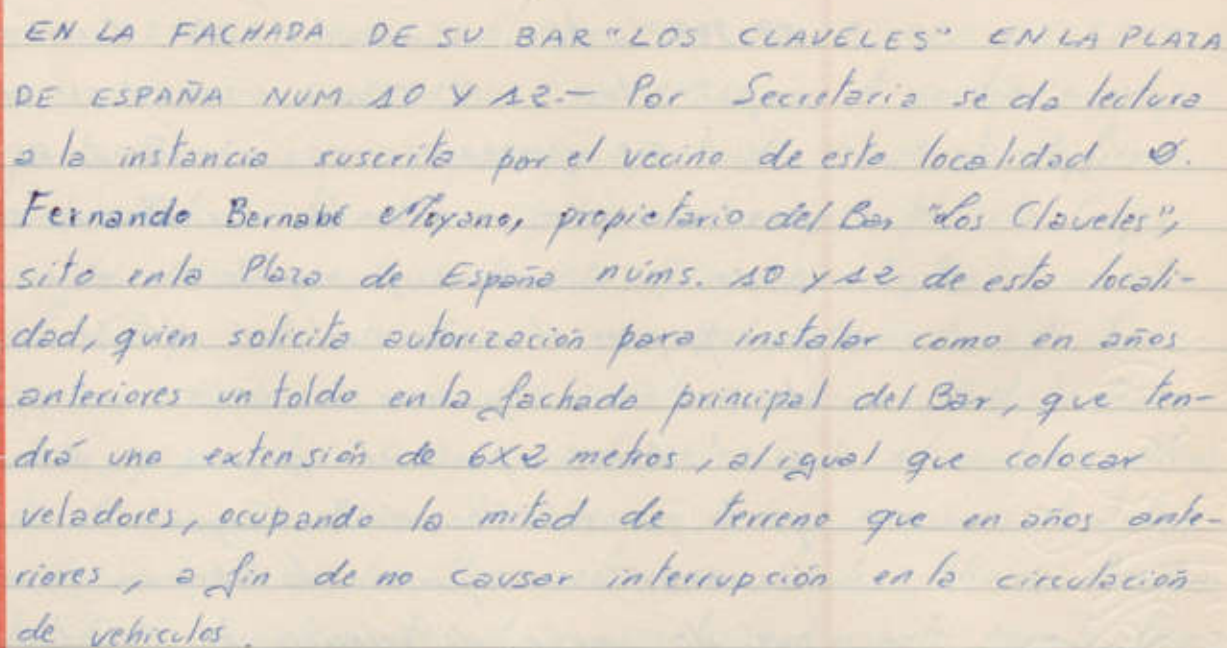 EN LA FACHADA DE SU BAR "LOS CLAVELES" EN LA PLAZA
DE ESPAÑA NUM 10 Y 12.- Por Secretaria se da lectura
a la instancia suscrita por el vecino de esta localidad D.
Fernando Bernabé Moyano, propietario del Bar "Los Claveles",
sito en la Plaza de España núms. 10 y 12 de esta locali-
dad, quien solicita autorización para instalar como en años
anteriores un toldo en la fachada principal del Bar, que ten-
drá una extensión de 6X2 metros, al igual que colocar
veladores, ocupando la mitad de terreno que en años ante-
riores, a fin de no causar interrupción en la circulación
de vehiculos.